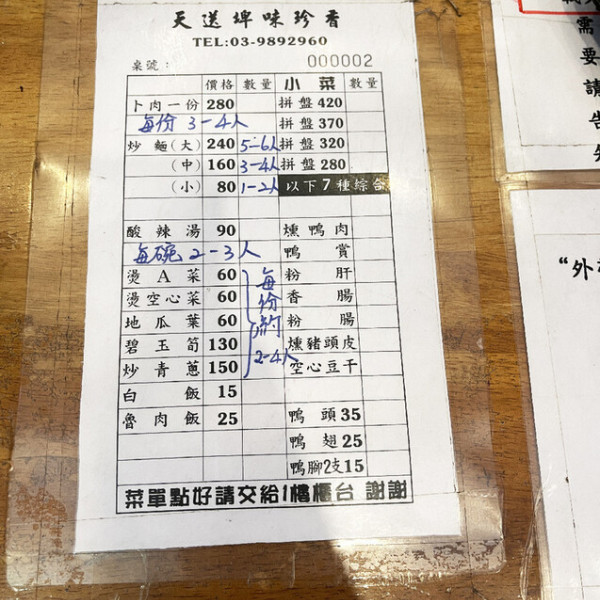 天送埤味珍香
TEL:03-9892960
桌號: 000002
價格 數量 小菜 數量
卜肉一份 280 拼盤 420
每份 3-4人 拼盤 370
炒麵(大) 240 5-6人 拼盤 320
(中) 160 3-4人 拼盤 280
(小) 80 1-2人 以下7種綜合
酸辣湯 90 燻鴨肉
每碗 2-3人 鴨賞
燙A菜 60 粉肝
燙空心菜 60 香腸
地瓜葉 60 粉腸
每份約 2-4人
碧玉筍 130 燻豬頭皮
炒青蔥 150 空心豆干
白飯 15
魯肉飯 25 鴨頭 35
鴨翅 25
鴨腳2支 15
菜單點好請交給1樓櫃台 謝謝
需
要
請
告
“外